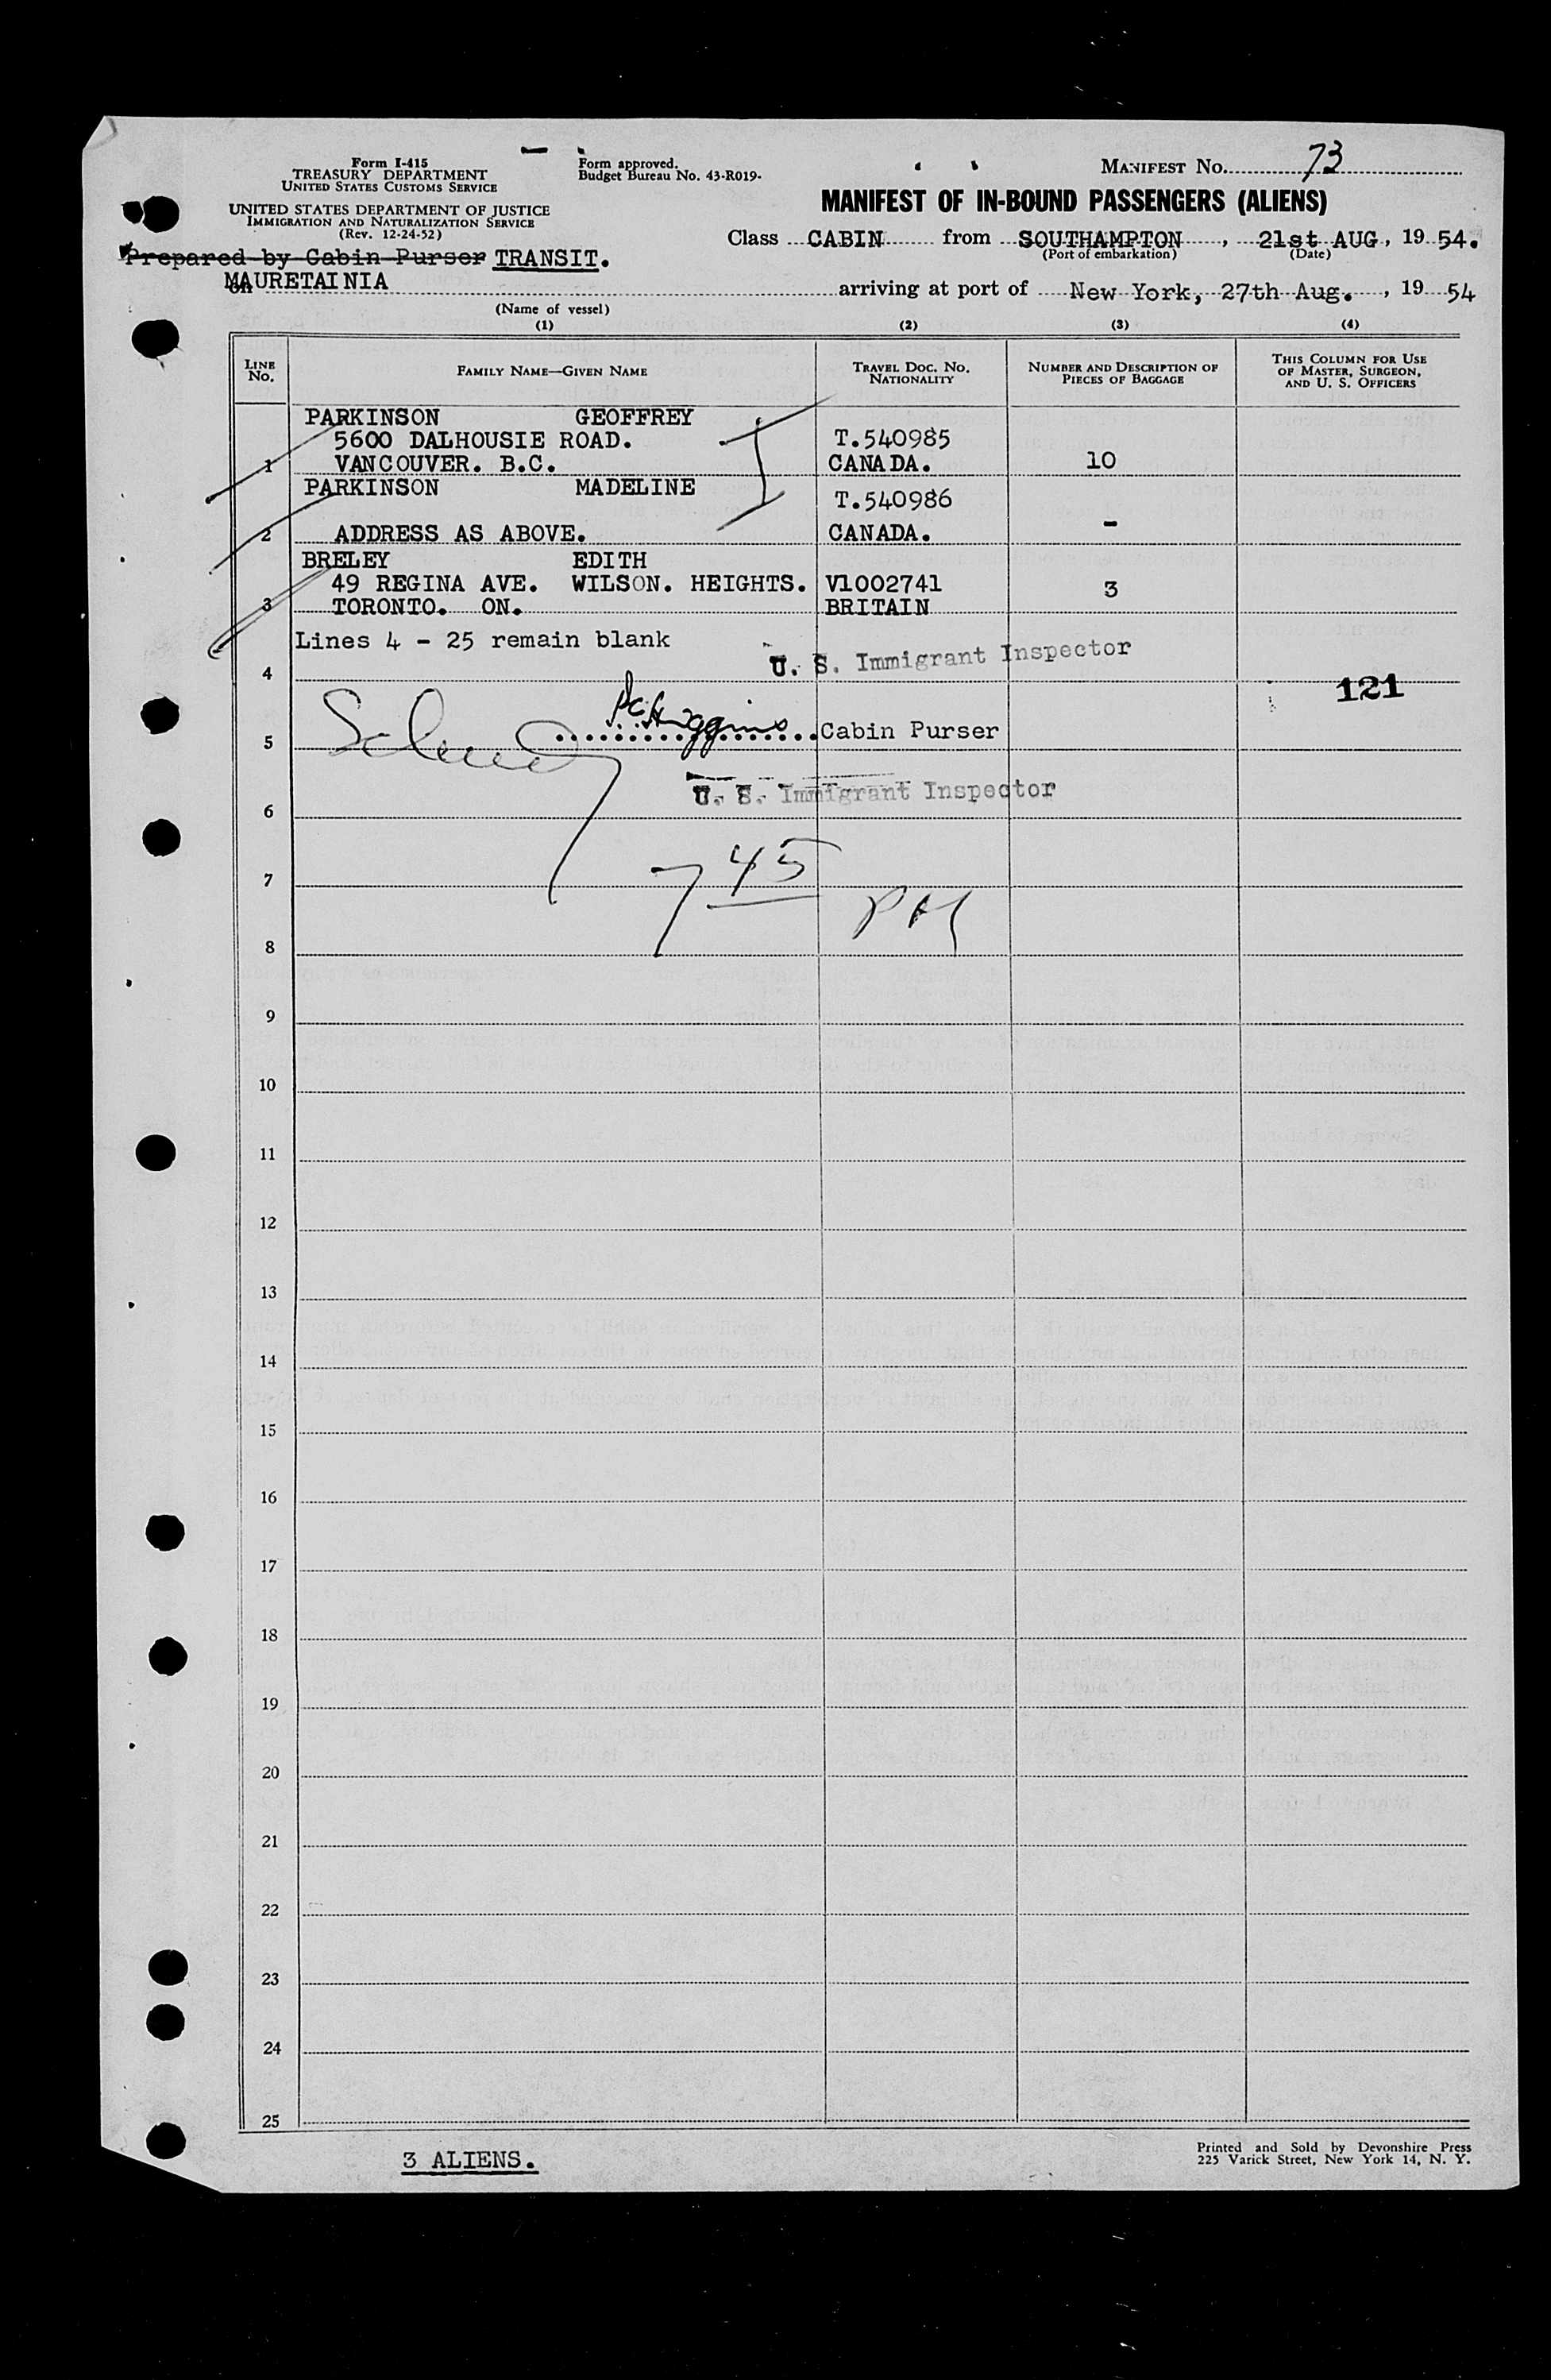 Form I-415
TREASURY DEPARTMENT
UNITED STATES CUSTOMS SERVICE
UNITED STATES DEPARTMENT OF JUSTICE
IMMIGRATION AND NATURALIZATION SERVICE
(Rev. 12-24-52)
Form approved.
Budget Bureau No. 43-R019-
MANIFEST No. 73
MANIFEST OF IN-BOUND PASSENGERS (ALIENS)
Class CABIN from SOUTHAMPTON, 21st AUG, 19 54.
(Port of embarkation) (Date)
Prepared by Cabin Purser TRANSIT.
MAURETAINIA arriving at port of New York, 27th Aug., 19 54
(Name of vessel)
(1) (2) (3) (4)
LINE No. FAMILY NAME—GIVEN NAME TRAVEL DOC. No. NATIONALITY NUMBER AND DESCRIPTION OF PIECES OF BAGGAGE THIS COLUMN FOR USE OF MASTER, SURGEON, AND U. S. OFFICERS
PARKINSON GEOFFREY
5600 DALHOUSIE ROAD. T.540985
1 VANCOUVER. B.C. CANADA. 10
PARKINSON MADELINE T.540986
2 ADDRESS AS ABOVE. CANADA. -
BRELEY EDITH
49 REGINA AVE. WILSON. HEIGHTS. V1002741 3
3 TORONTO. ON. BRITAIN
Lines 4 - 25 remain blank
U. S. Immigrant Inspector
4 121
5 Higgins Cabin Purser
U. S. Immigrant Inspector
6
7 45
7
PM
8
9
10
11
12
13
14
15
16
17
18
19
20
21
22
23
24
25
3 ALIENS.
Printed and Sold by Devonshire Press
225 Varick Street, New York 14, N. Y.